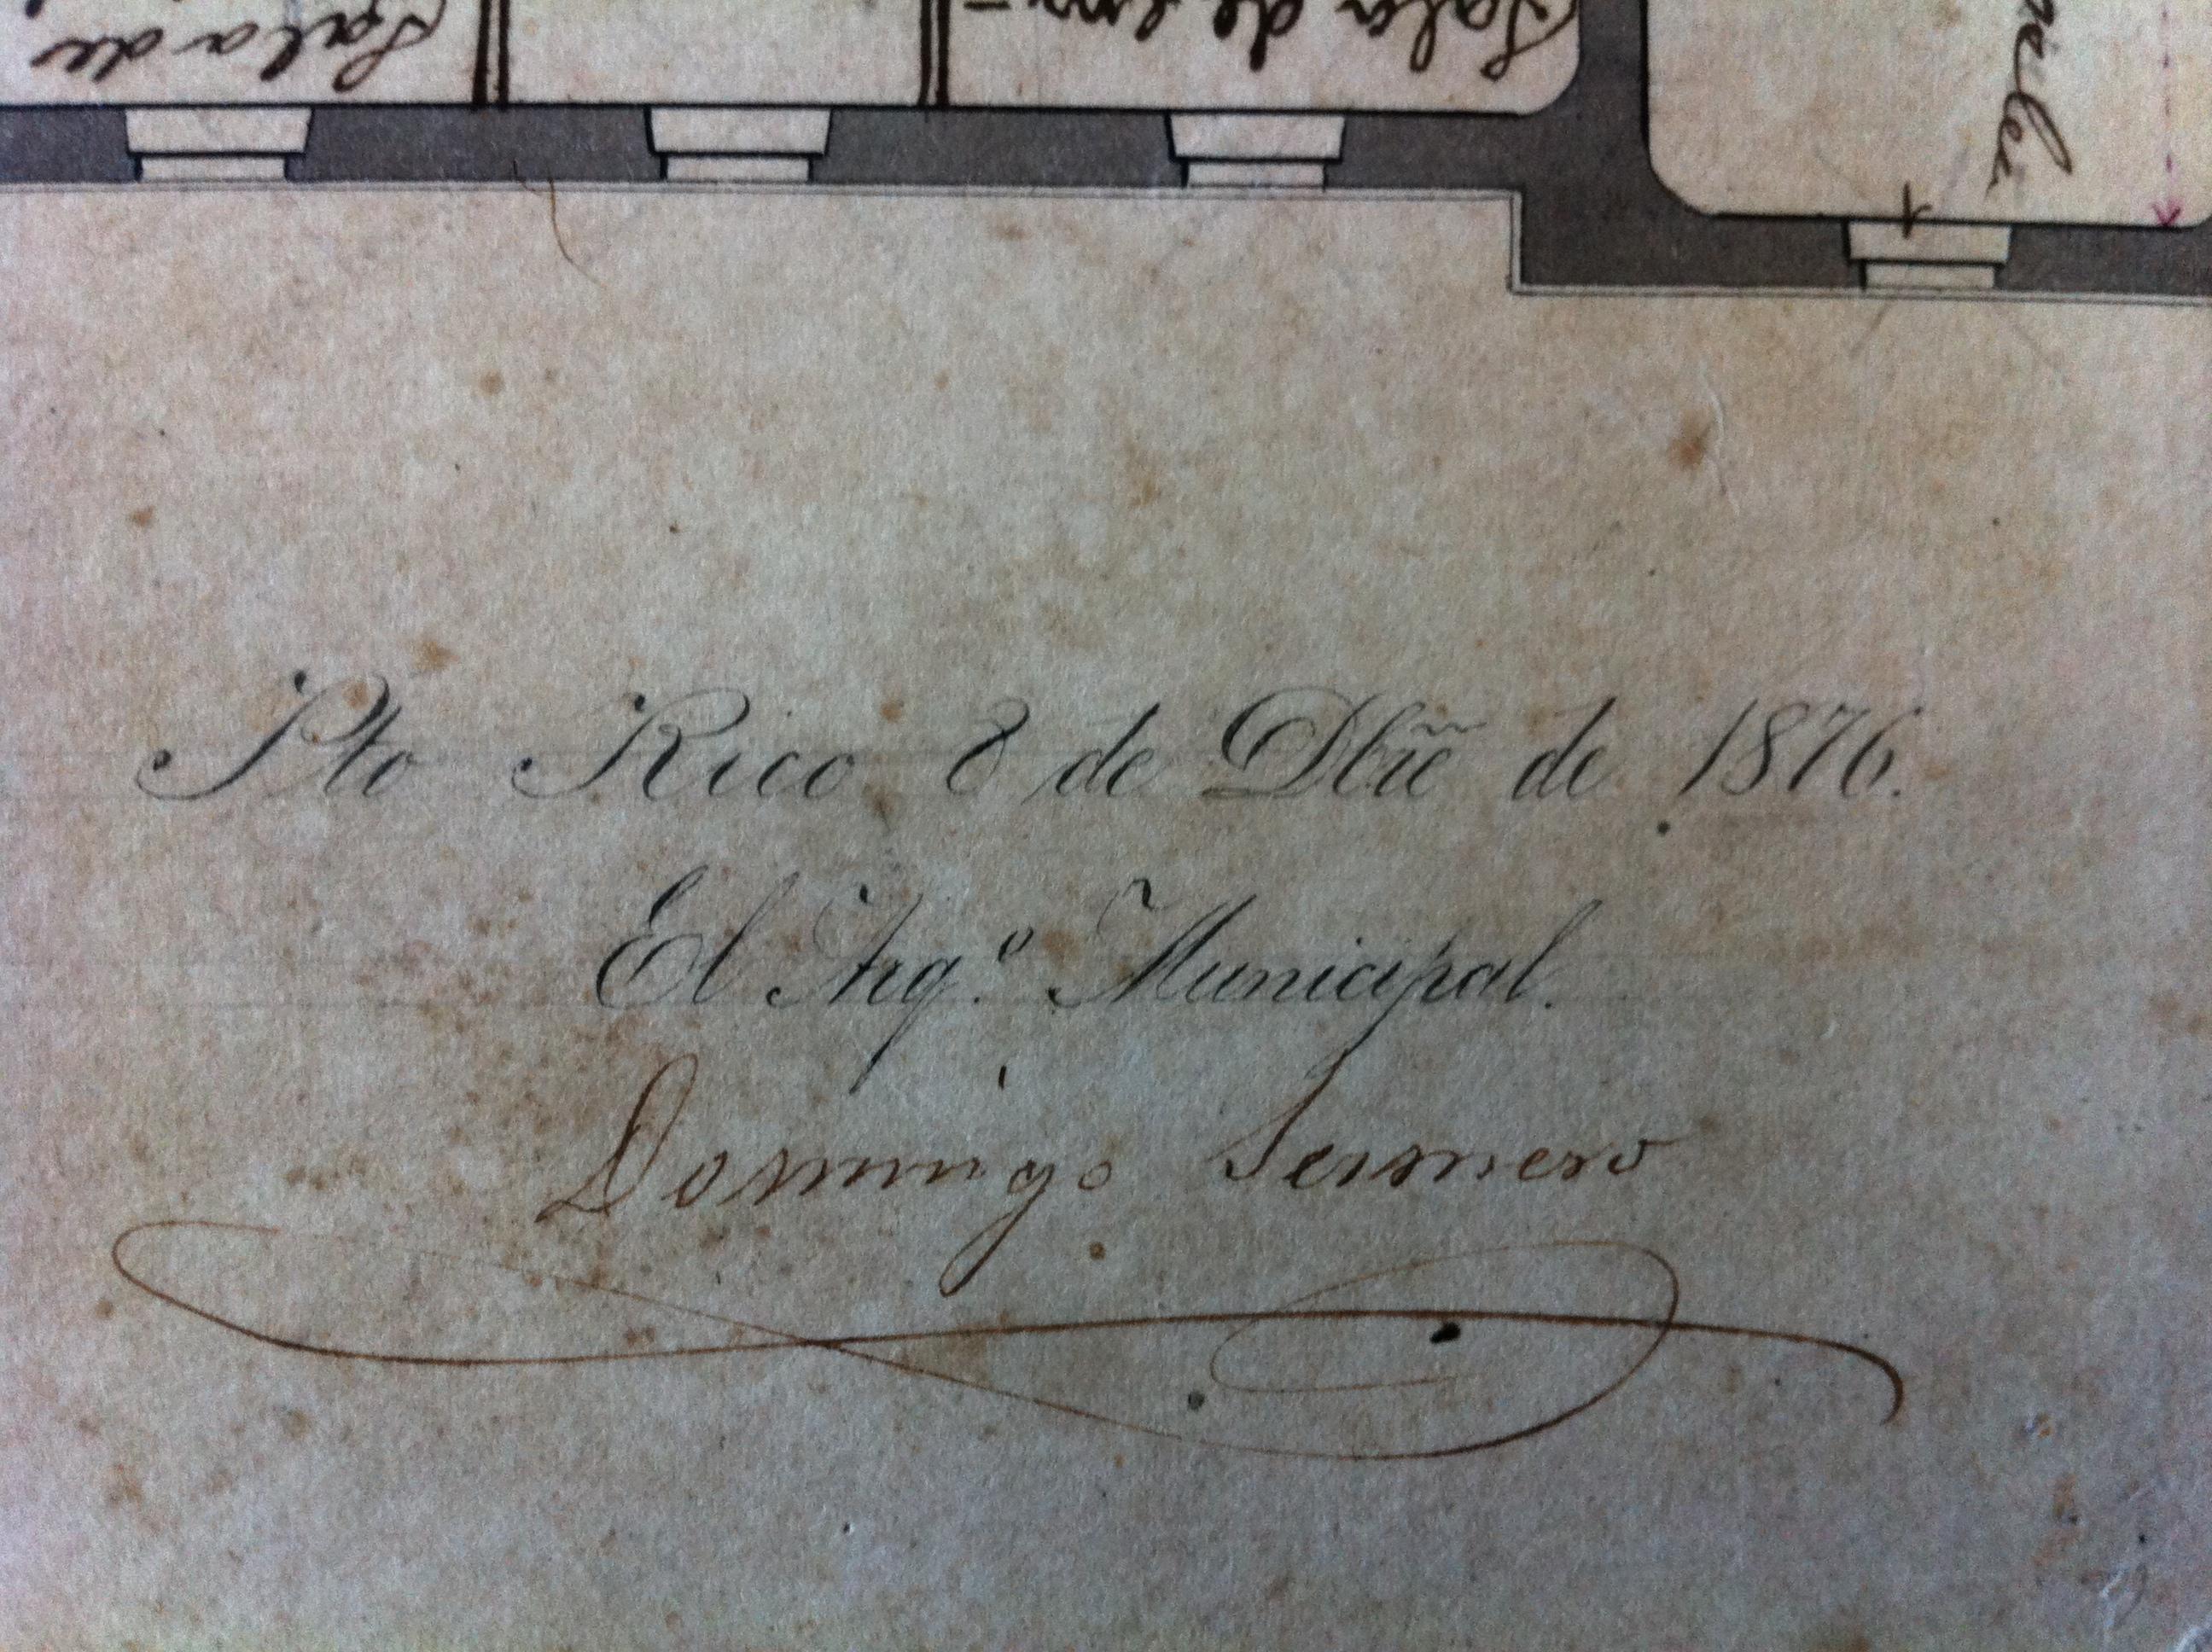 Sala de
Sala de em-
Pto Rico 8 de Dbr̃e de 1876.
El Arq.º Municipal.
Domingo Sesmero